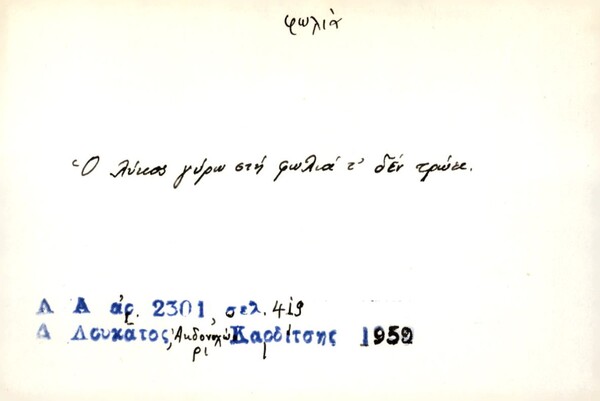 φωλιὰ
Ὁ λύκος γύρω στή φωλιά τ' δέν τρώει.
Λ Α ἀρ. 2301, σελ. 419
Δ Λουκᾶτος, Καρδίτσης 1959